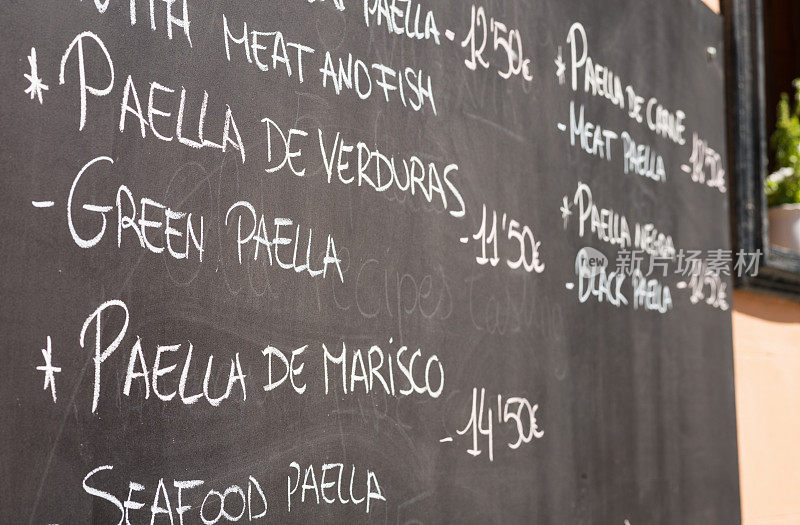 PAELLA -12'50€
MEAT AND FISH
* PAELLA DE VERDURAS
- GREEN PAELLA -11'50€
* PAELLA DE MARISCO
-14'50€
SEAFOOD PAELLA
* PAELLA DE CARNE
- MEAT PAELLA -12'50€
* PAELLA NEGRA
- BLACK PAELLA
new 新图网